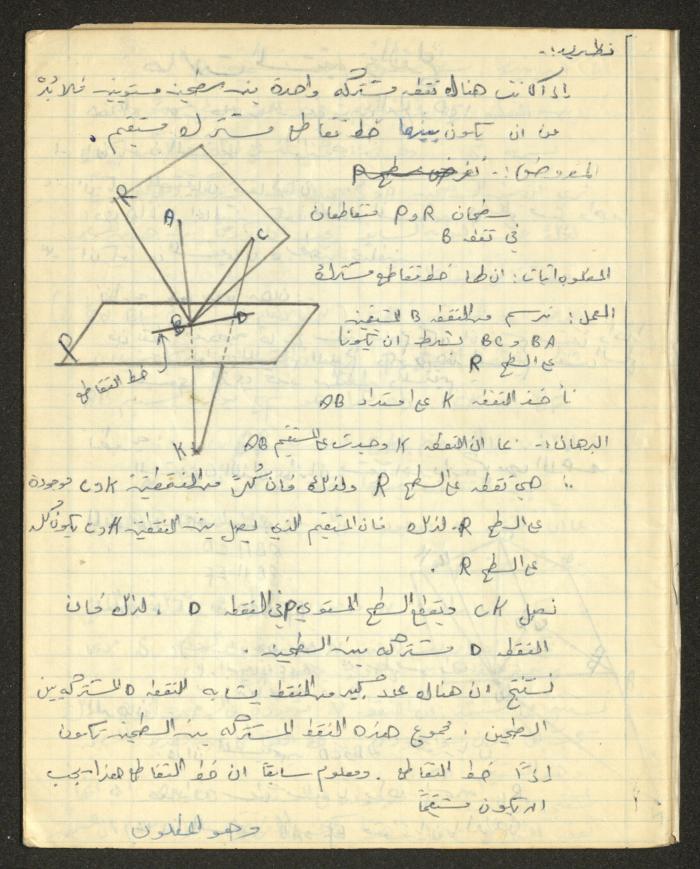 نظرية :-
إذا كانت هناك نقطه مشتركه واحدة بين سطحين مستويين فلا بُدّ
من ان يكون بينهما خط تقاطع مشترك مستقيم .
المفروض :- نفرض سطح P
سطحان R و P متقاطعان
في نقطه B
المطلوب اثبات : ان لهما خط تقاطع مشترك
العمل : نرسم من النقطه B المستقيمين
BA و BC بشرط ان يكونا
على السطح R
نأخذ النقطه K على امتداد AB
البرهان :- بما ان النقطه K وجدت على المستقيم AB
∴ هي نقطه على السطح R ولذلك فان كُلاً من النقطتين K و C موجودة
على السطح R. لذلك فان المستقيم الذي يصل بين النقطتين K و C يكون كُله
على السطح R .
نصل CK ويقطع السطح المستوي P في النقطه D . لذلك فان
النقطه D مشتركه بين السطحين .
نستنتج ان هناك عدد كبير من النقط يشابه النقطه D المشتركه بين
السطحين . مجموع هذه النقط المشتركه بين السطحين تكون
إذاً خط التقاطع . ومعلوم سابقاً ان خط التقاطع هذا يجب
ان يكون مستقيماً
وهو المطلوب
R
A
C
B
D
P
خط التقاطع
K